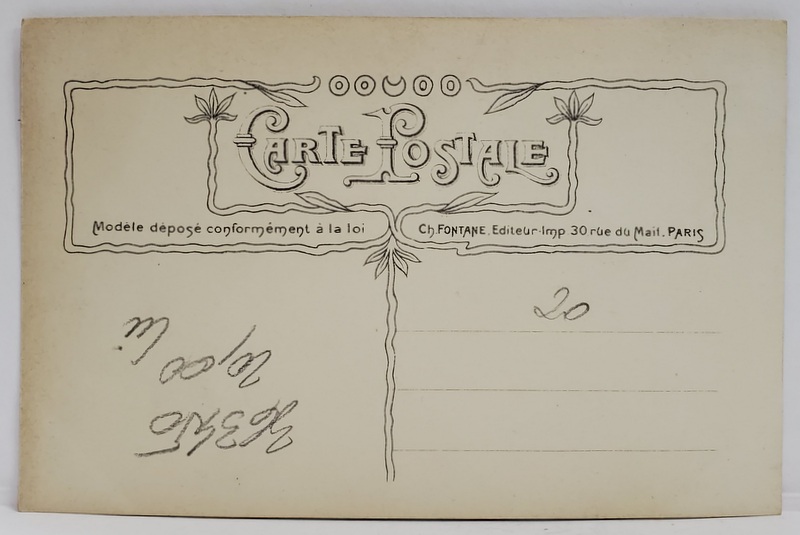 CARTE POSTALE
Modèle déposé conformément à la loi
Ch. FONTANE. Editeur-Imp 30 rue du Mail. PARIS
20
10,00 lei